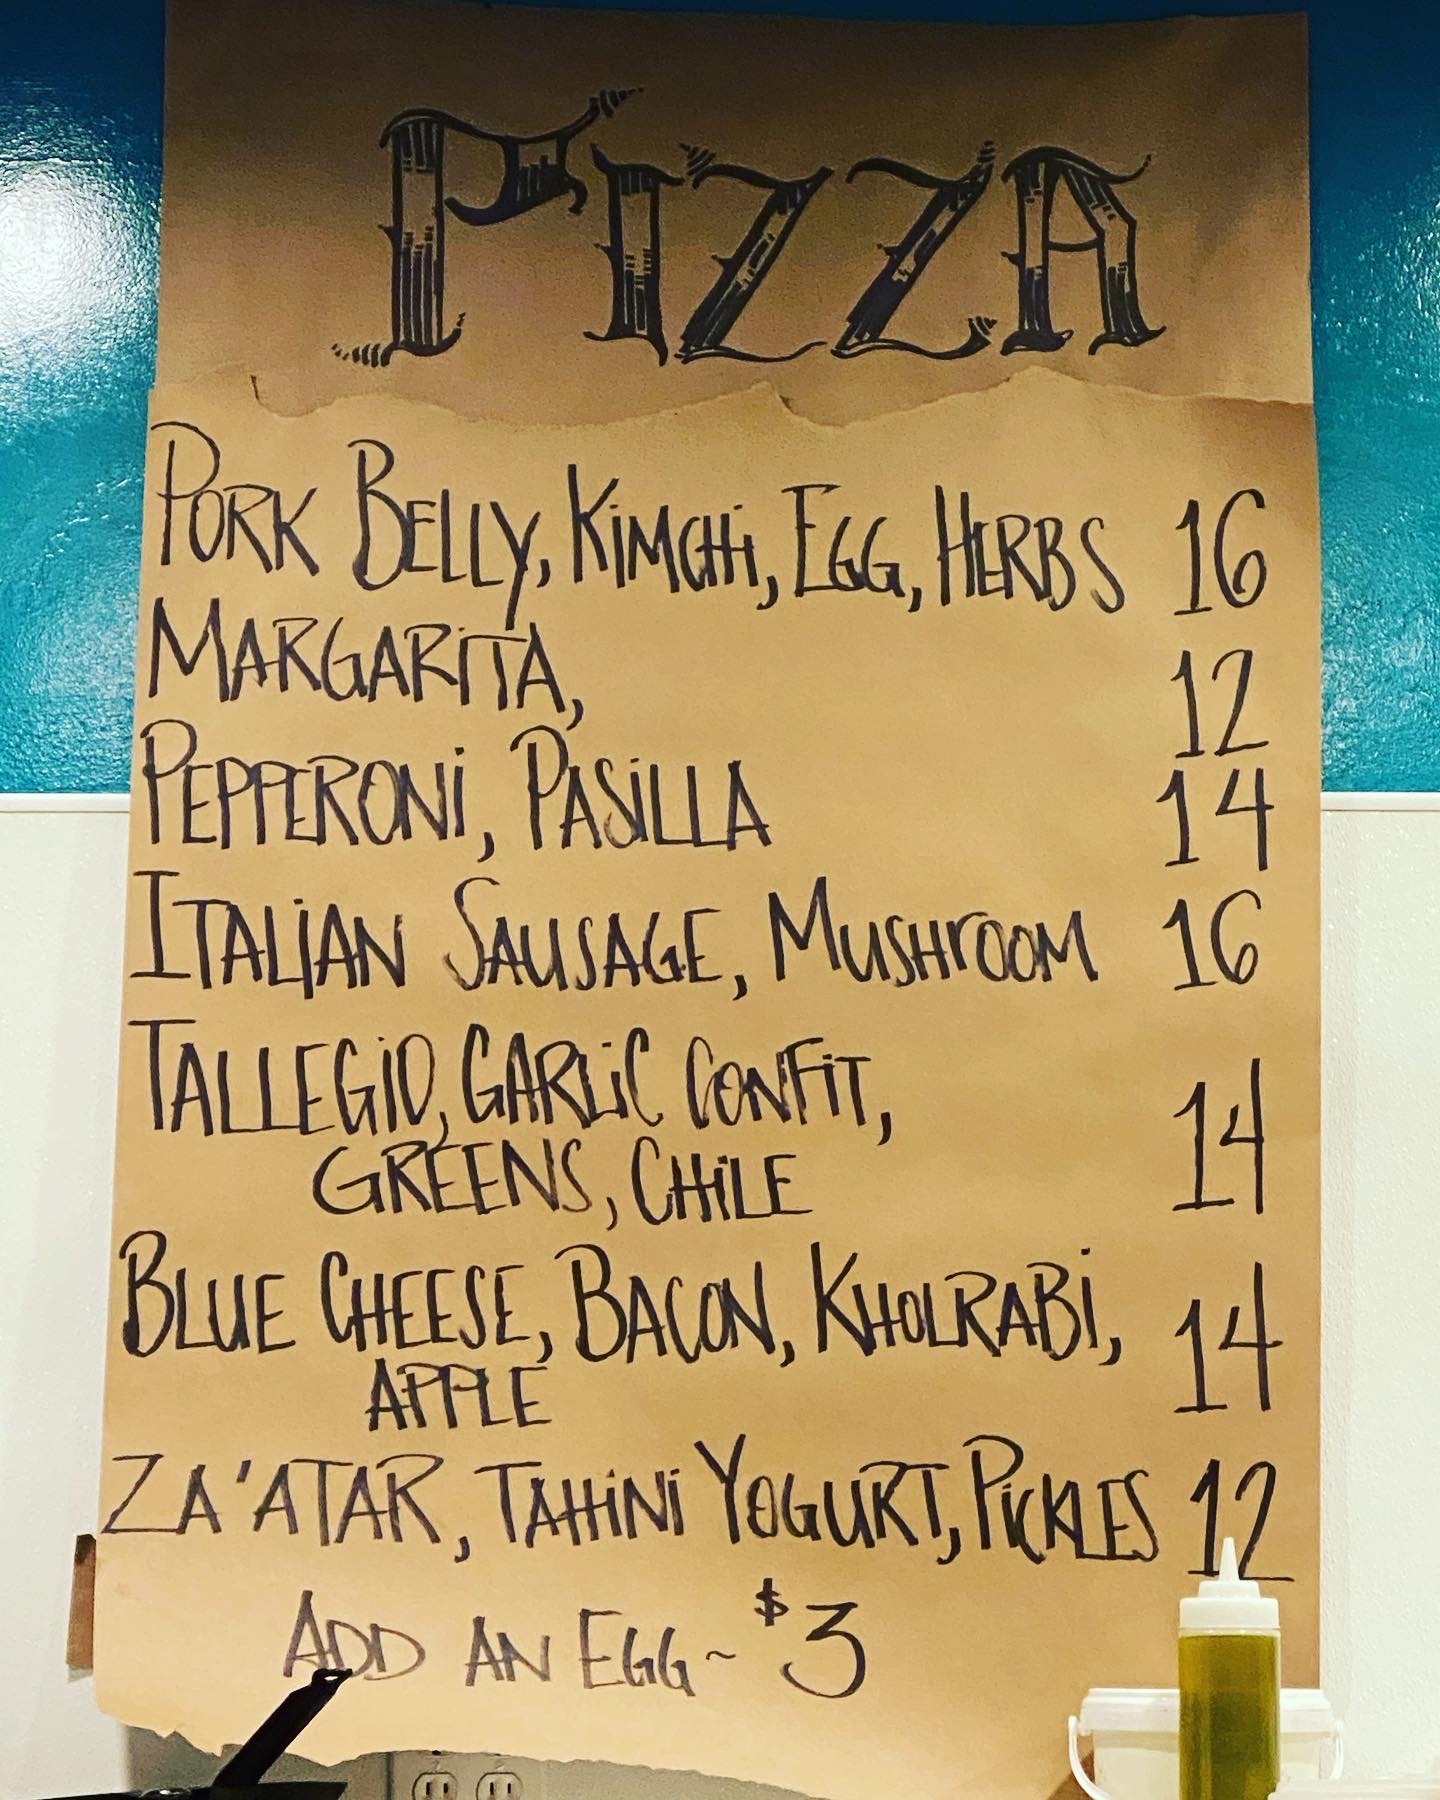 PIZZA
PORK BELLY, KiMCHi, EGG, HERBS 16
MARGARiTA, 12
PEPPERONi, PASiLLA 14
ITALiAN SAUSAGE, MUSHROOM 16
TALLEGiO, GARLiC CONFiT,
GREENS, CHiLE 14
BLUE CHEESE, BACON, KHOLRABi, 14
APPLE
ZA'ATAR, TAHiNi YOGURT, PiCKLES 12
ADD AN EGG ~ $3